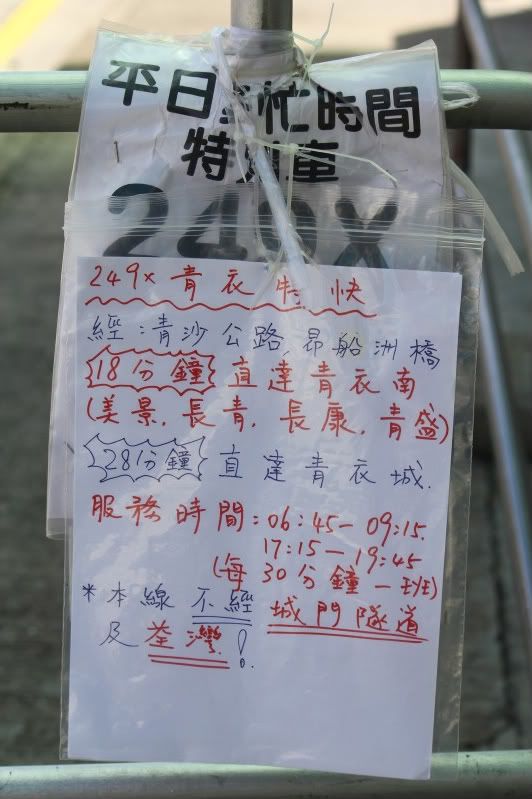 平日繁忙時間
特別車
249X
249x 青衣特快
經:清沙公路,昂船洲橋
18分鐘 直達青衣南
(美景,長青,長康,青盛)
28分鐘 直達青衣城.
服務時間:06:45—09:15.
17:15—19:45
(每30分鐘一班)
*本線不經 城門隧道
及荃灣!